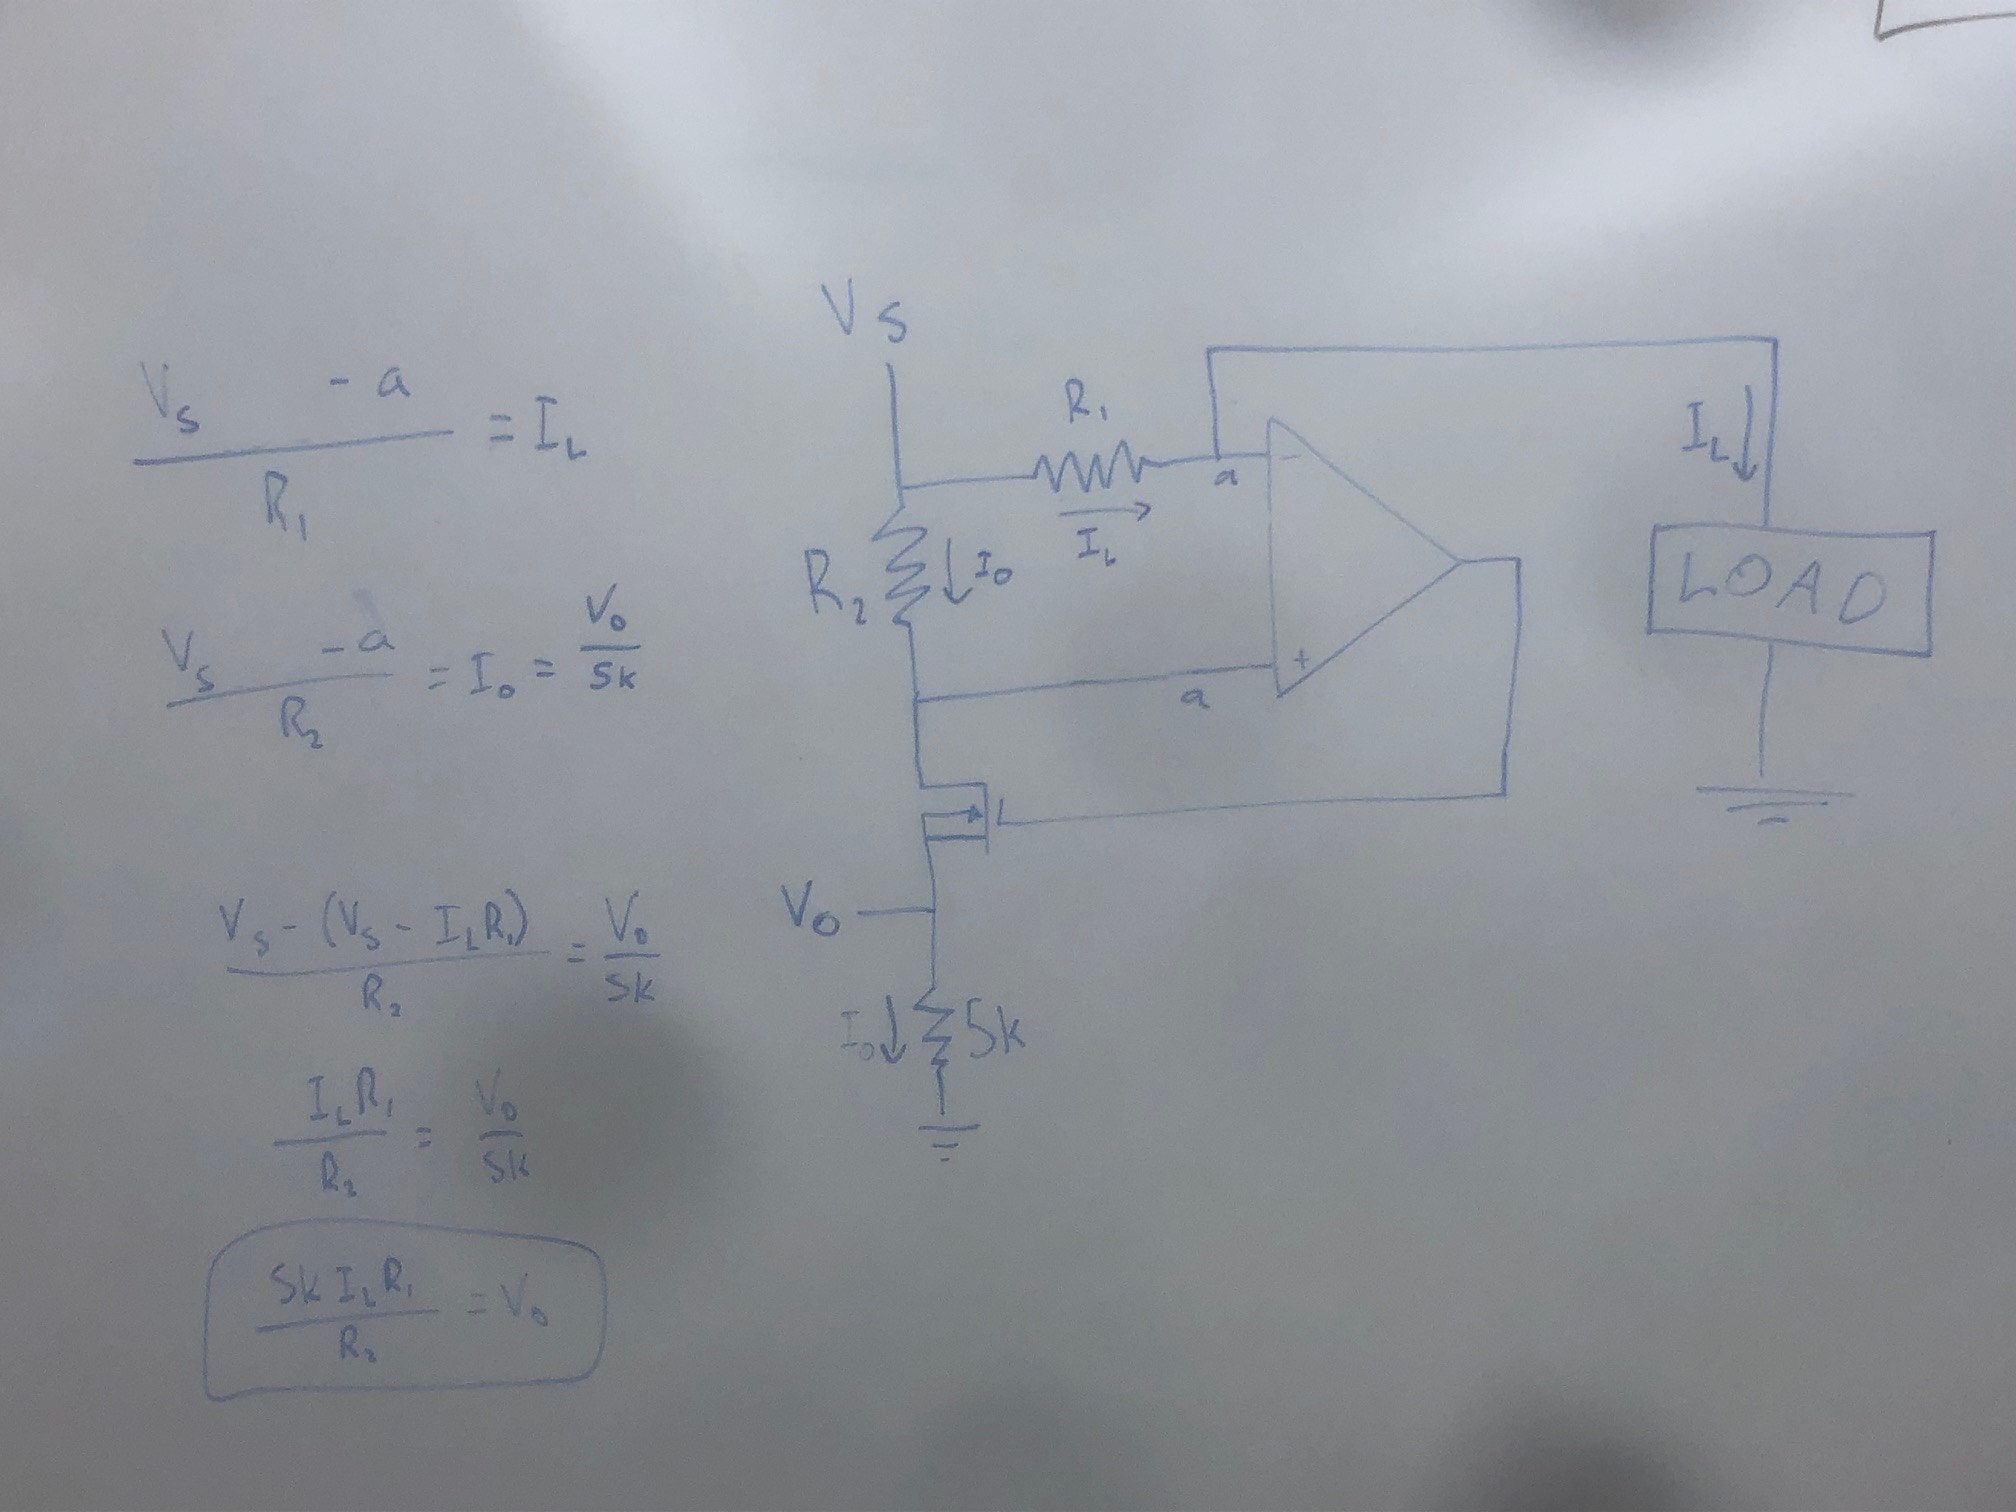 V_s - a
R_1
= I_L
V_s - a
R_2
= I_o =
V_o
5k
V_s - (V_s - I_L R_1)
R_2
=
V_o
5k
I_L R_1
R_2
=
V_o
5k
5k I_L R_1
R_2
= V_o
V_s
R_1
a
-
I_L
R_2
I_o
I_L
LOAD
a
+
V_o
I_o
5k